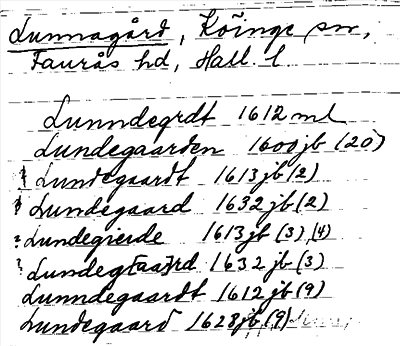 Lunnagård, Köinge sn,
Faurås hd, Hall. l
Lunndegrdt 1612 ml
Lundegaarden 1600 jb (20)
? Lundegaardt 1613 jb (2)
? Lundegaard 1632 jb (2)
? Lundegierde 1613 jb (3) (4)
? Lundeg[aa]rd 1632 jb (3)
Lunndegaardt 1612 jb (9)
Lundegaard 1628 jb (9)